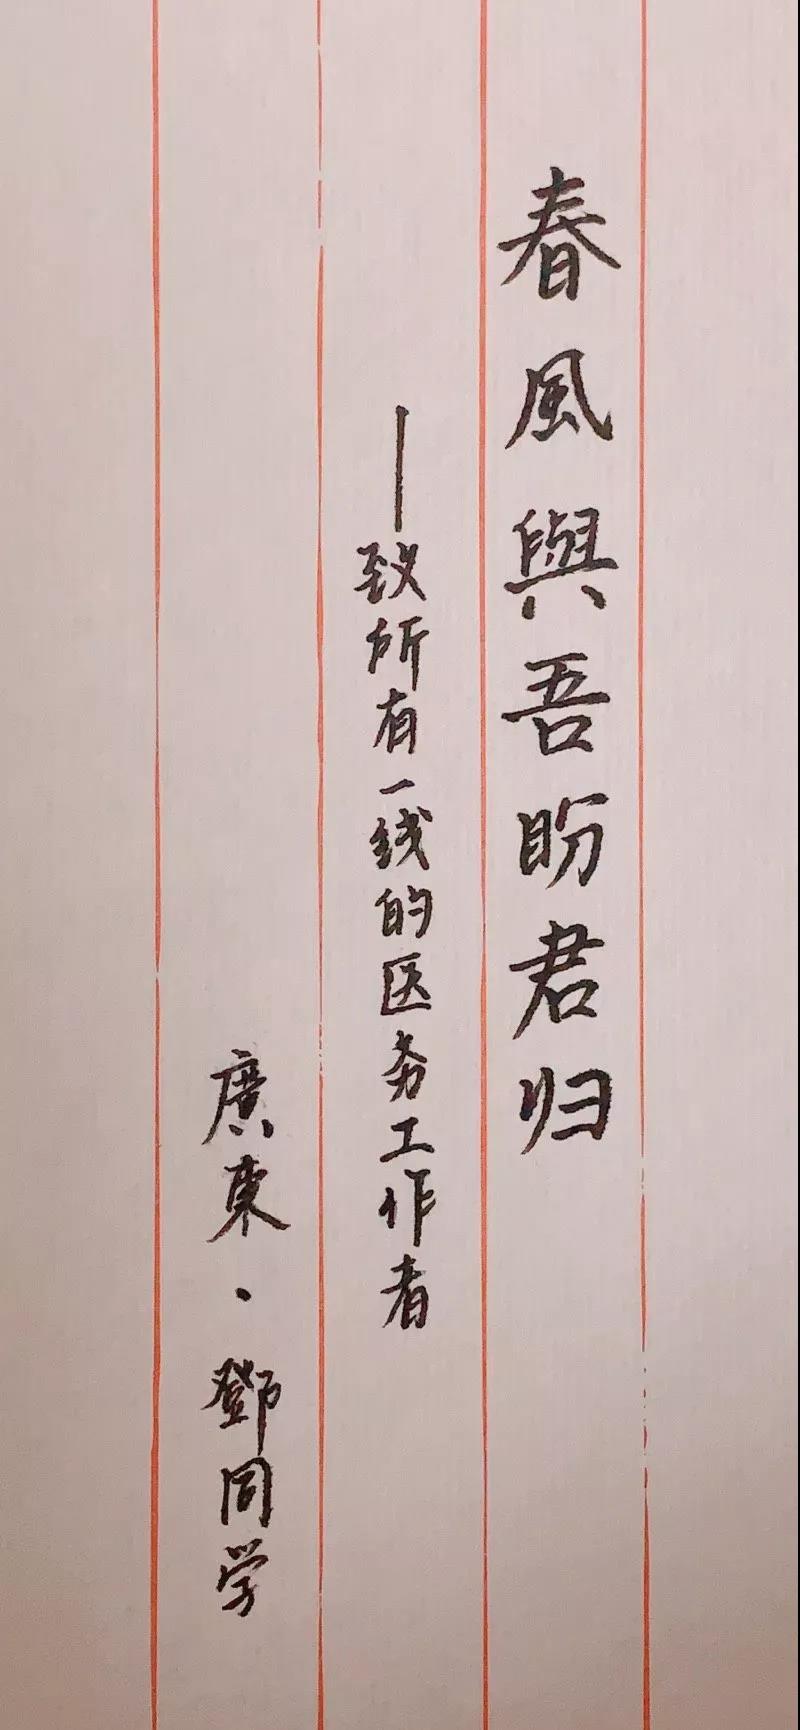 春風與吾盼君归
—致所有一线的医务工作者
廣東·鄧同学